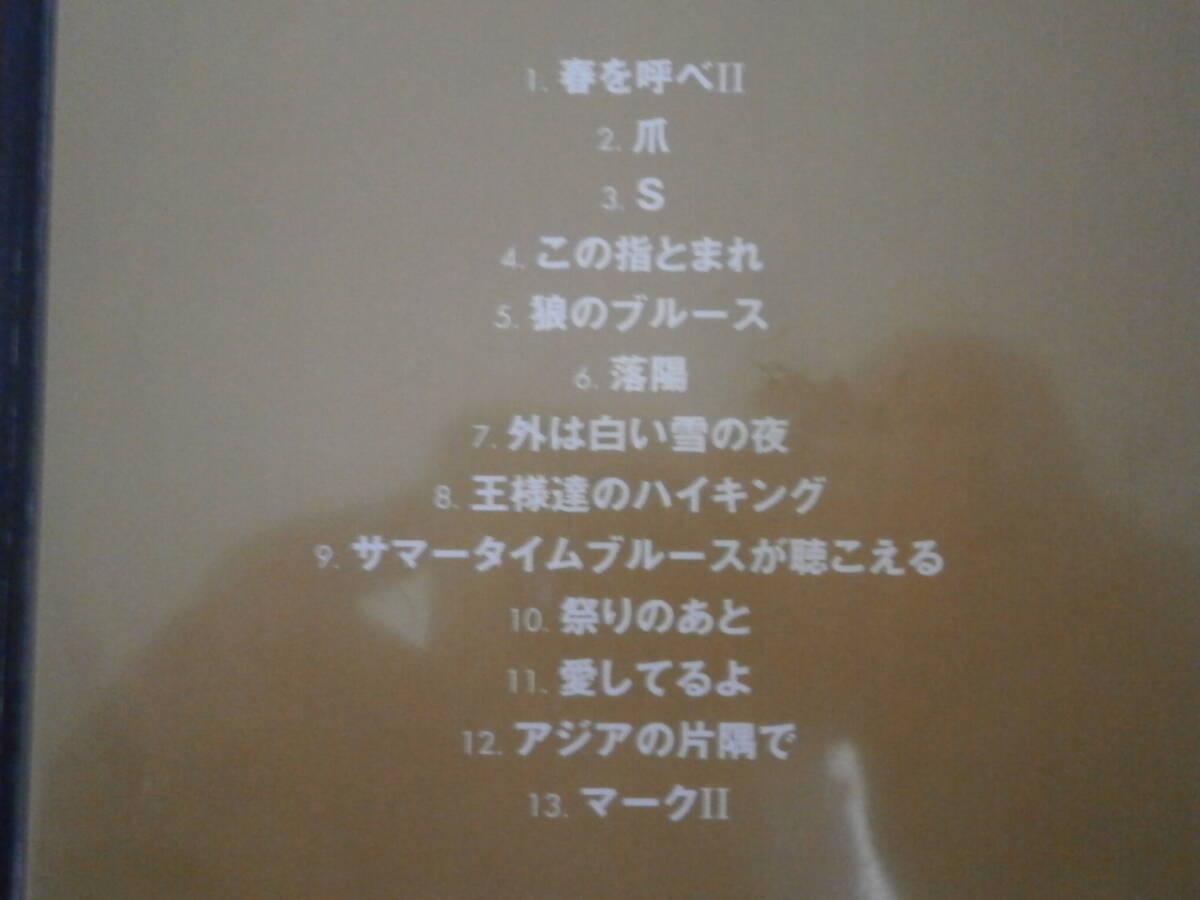 1. 春を呼べII
2. 爪
3. S
4. この指とまれ
5. 狼のブルース
6. 落陽
7. 外は白い雪の夜
8. 王様達のハイキング
9. サマータイムブルースが聴こえる
10. 祭りのあと
11. 愛してるよ
12. アジアの片隅で
13. マークII